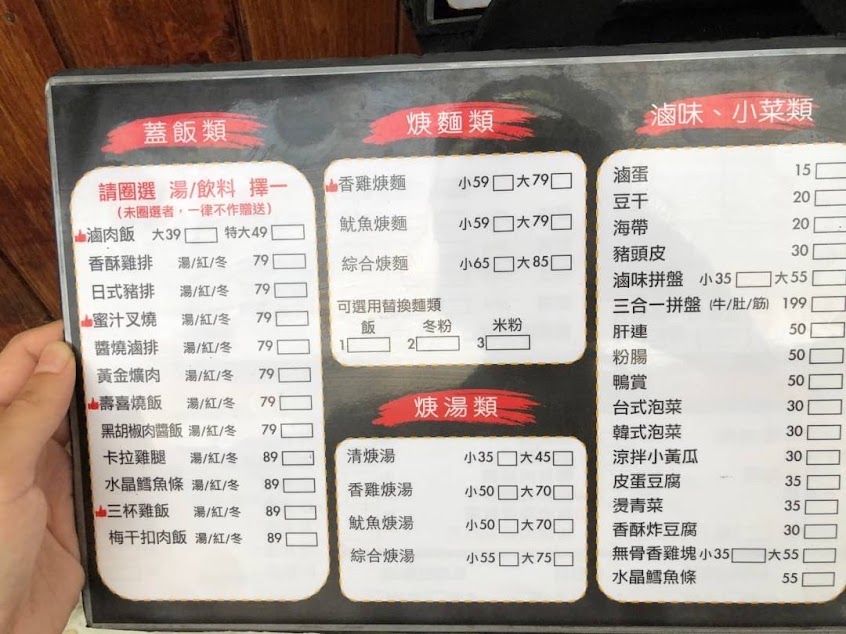 蓋飯類
請圈選 湯/飲料 擇一
(未圈選者，一律不作贈送)
滷肉飯 大39 特大49
香酥雞排 湯/紅/冬 79
日式豬排 湯/紅/冬 79
蜜汁叉燒 湯/紅/冬 79
醬燒滷排 湯/紅/冬 79
黃金爌肉 湯/紅/冬 79
壽喜燒飯 湯/紅/冬 79
黑胡椒肉醬飯 湯/紅/冬 79
卡拉雞腿 湯/紅/冬 89
水晶鱈魚條 湯/紅/冬 89
三杯雞飯 湯/紅/冬 89
梅干扣肉飯 湯/紅/冬 89
焿麵類
香雞焿麵 小59 大79
魷魚焿麵 小59 大79
綜合焿麵 小65 大85
可選用替換麵類
飯 冬粉 米粉
1 2 3
焿湯類
清焿湯 小35 大45
香雞焿湯 小50 大70
魷魚焿湯 小50 大70
綜合焿湯 小55 大75
滷味、小菜類
滷蛋 15
豆干 20
海帶 20
豬頭皮 30
滷味拼盤 小35 大55
三合一拼盤 (牛/肚/筋) 199
肝連 50
粉腸 50
鴨賞 50
台式泡菜 30
韓式泡菜 30
涼拌小黃瓜 30
皮蛋豆腐 35
燙青菜 35
香酥炸豆腐 30
無骨香雞塊 小35 大55
水晶鱈魚條 55